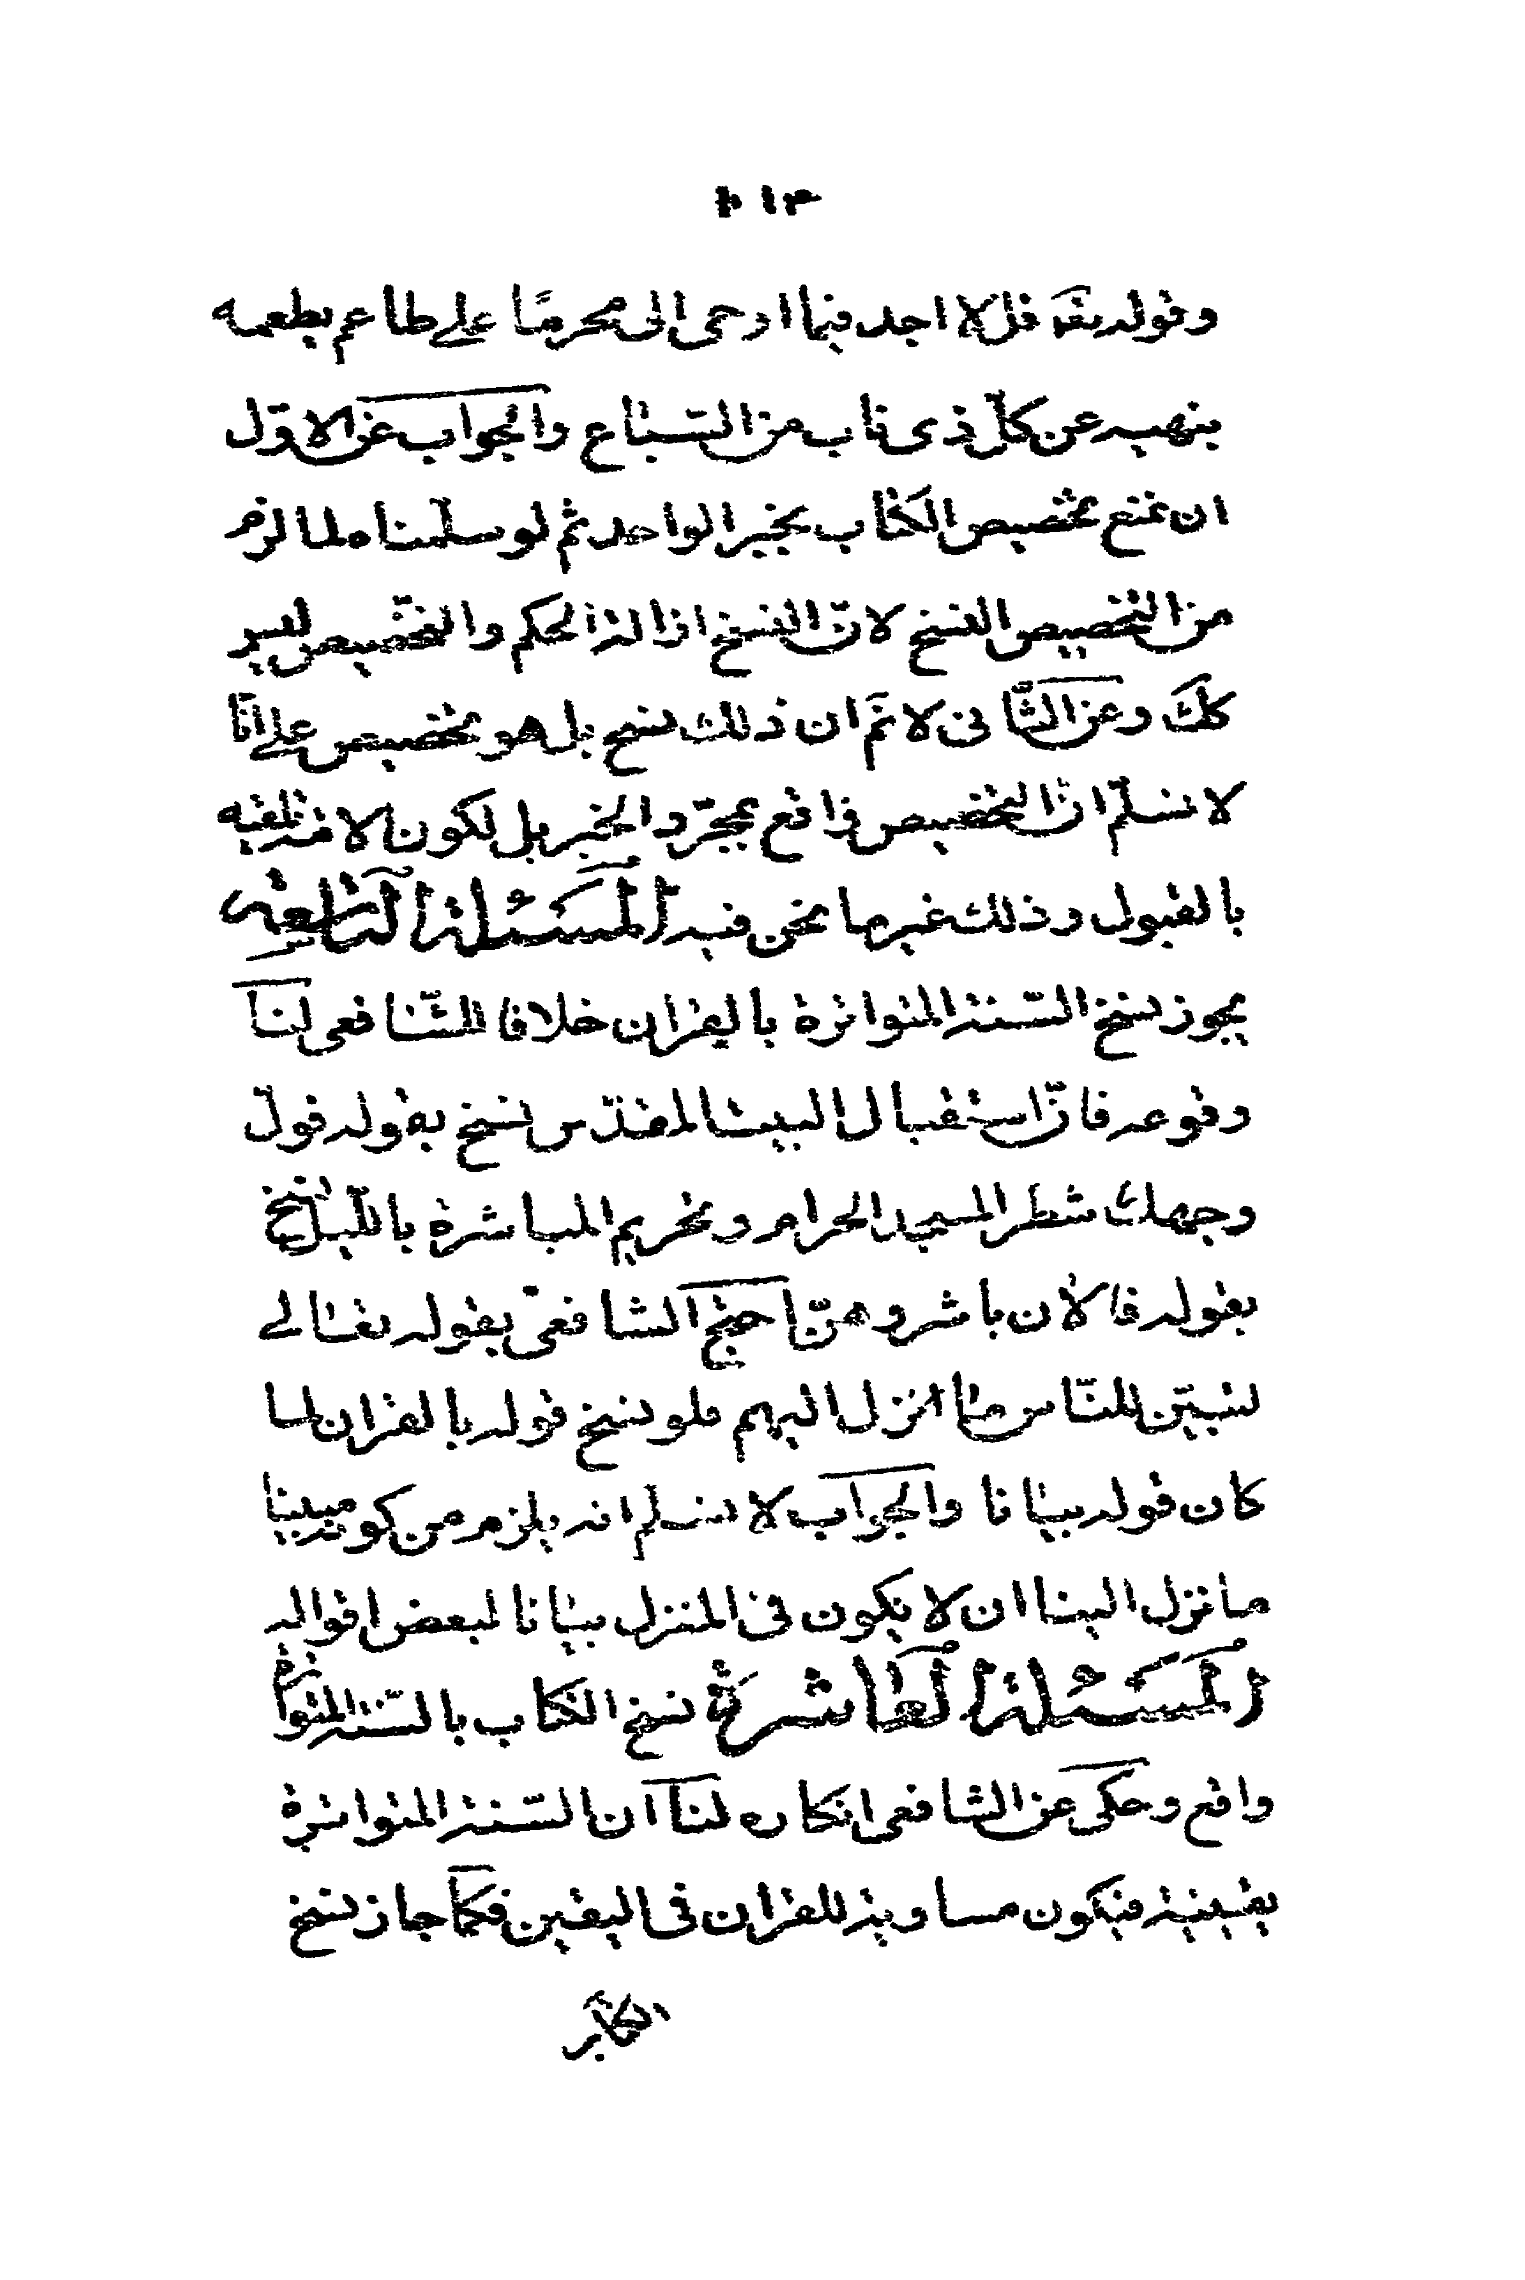 وقوله تعـ قل لا اجد فيما اوحى الى محرمًا على طاعم يطعمه
بنهيه عن كلّ ذى ناب من السّباع والجواب عن الاوّل
ان نمنع تخصيص الكتاب بخبر الواحد ثم لو سلّمناه لما لزم
من التخصيص النسخ لانّ النسخ ازالة الحكم والتخصيص ليس
كك وعن الثّانى لا نمّ ان ذلك نسخ بل هو تخصيص على انّا
لا نسلّم انّ التخصيص واقع بمجرّد الخبر بل لكون الامة تلقيه
بالقبول وذلك غير ما نحن فيه المسئلة الرّابعة
يجوز نسخ السّنة المتواترة بالقران خلافا للشّافعى لنا
وقوعه فانّ استقبال البيت المقدّس نسخ بقوله فولّ
وجهك شطر المسجد الحرام وتحريم المباشرة باللّيل نسخ
بقوله فالان باشروهنّ احتج الشافعىّ بقوله تعالى
لتبيّن للنّاس ما انزل اليهم فلو نسخ قوله بالقران لما
كان قوله بيانا والجواب لا نسلّم انه يلزم من كونه مبينا
ما نزل الينا ان لا يكون فى المنزل بيانا لبعض اقواله
المسئلة العاشرة نسخ الكتاب بالسّنة المتواترة
واقع وحكى عن الشافعى انكاره لنا ان السّنة المتواترة
يقينية فيكون مساوية للقران فى اليقين فكما جاز نسخ